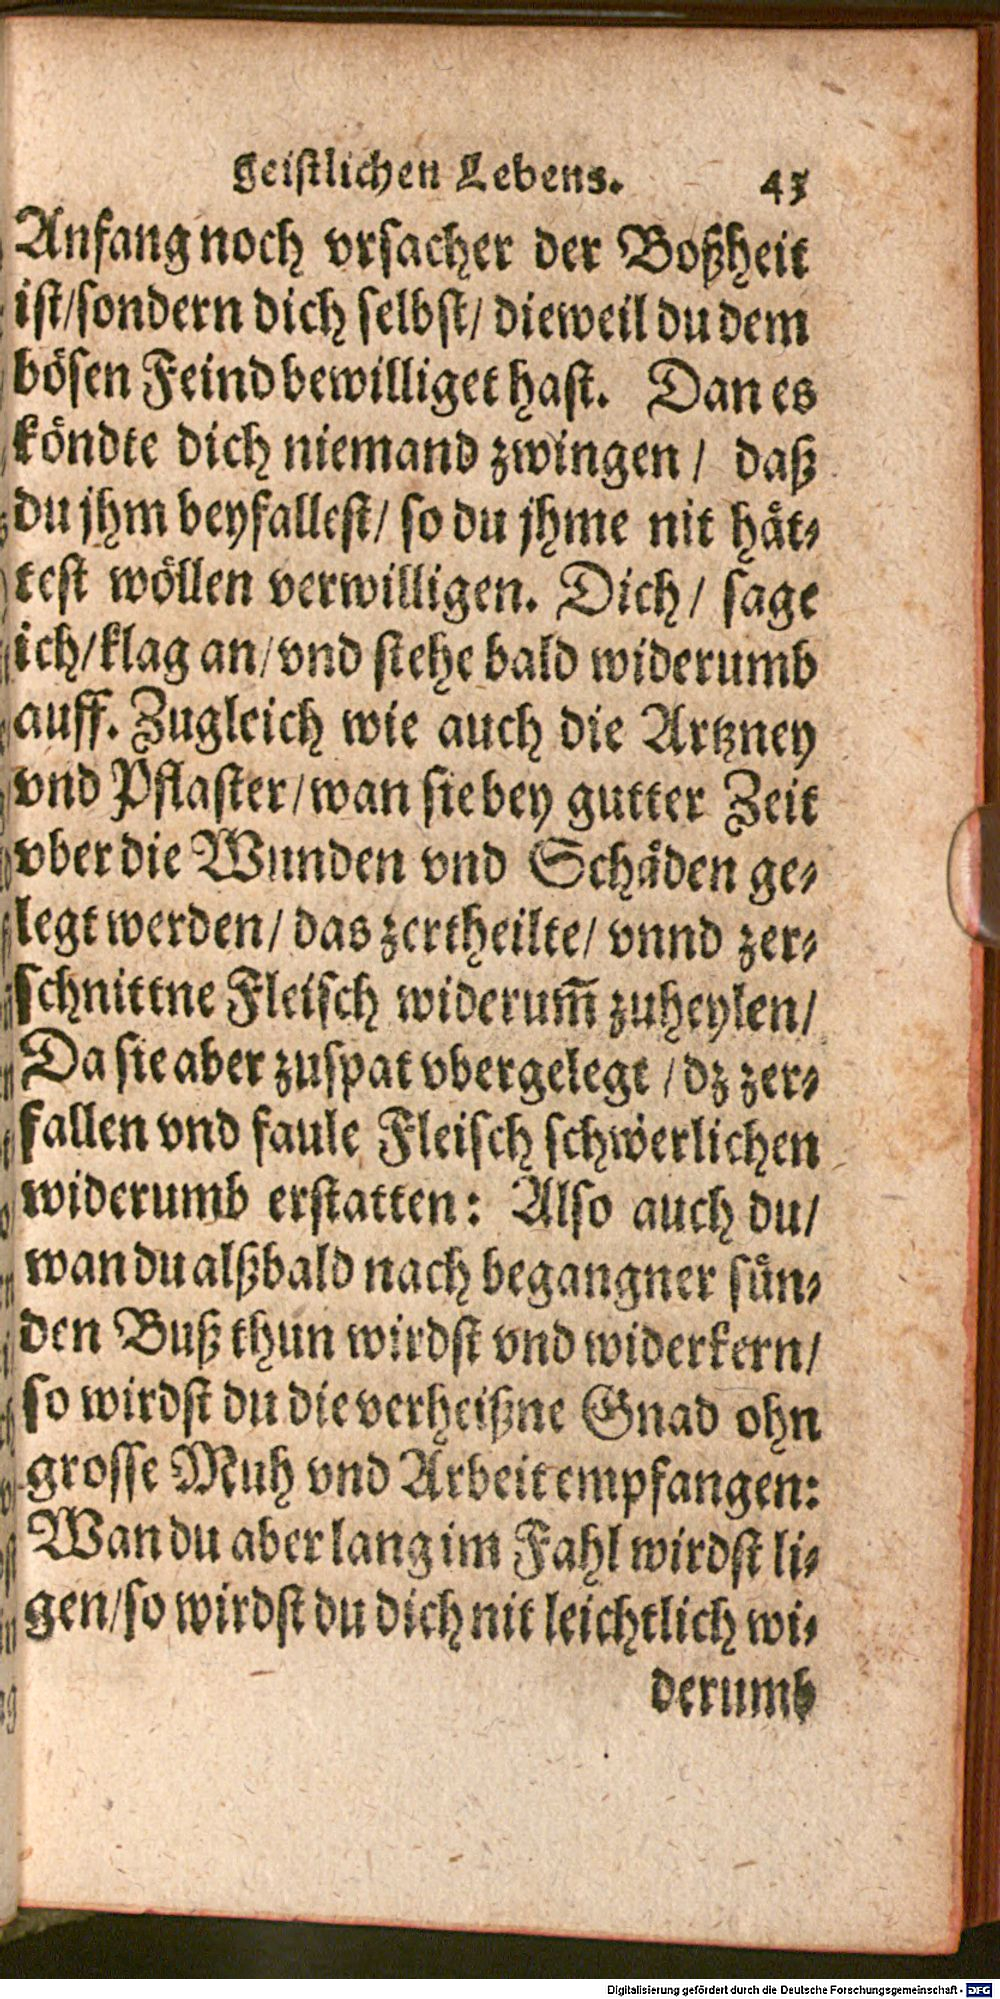 geistlichen Lebens. 43
Anfang noch vrsacher der Boßheit
ist/sondern dich selbst/ dieweil du dem
bösen Feind bewilliget hast. Dan es
köndte dich niemand zwingen / daß
du jhm beyfallest/ so du jhme nit hät-
test wöllen verwilligen. Dich/ sage
ich/klag an/vnd stehe bald widerumb
auff. Zugleich wie auch die Artzney
vnd Pflaster/wan sie bey gutter Zeit
vber die Wunden vnd Schäden ge-
legt werden/ das zertheilte/ vnnd zer-
schnittne Fleisch widerum̃ zuheylen/
Da sie aber zuspat vbergelegt / dz zer-
fallen vnd faule Fleisch schwerlichen
widerumb erstatten: Also auch du/
wan du alßbald nach begangner sün-
den Buß thun wirdst vnd widerkern/
so wirdst du die verheißne Gnad ohn
grosse Muh vnd Arbeit empfangen:
Wan du aber lang im Fahl wirdst li-
gen/so wirdst du dich nit leichtlich wi-
derumb
Digitalisierung gefördert durch die Deutsche Forschungsgemeinschaft - DFG